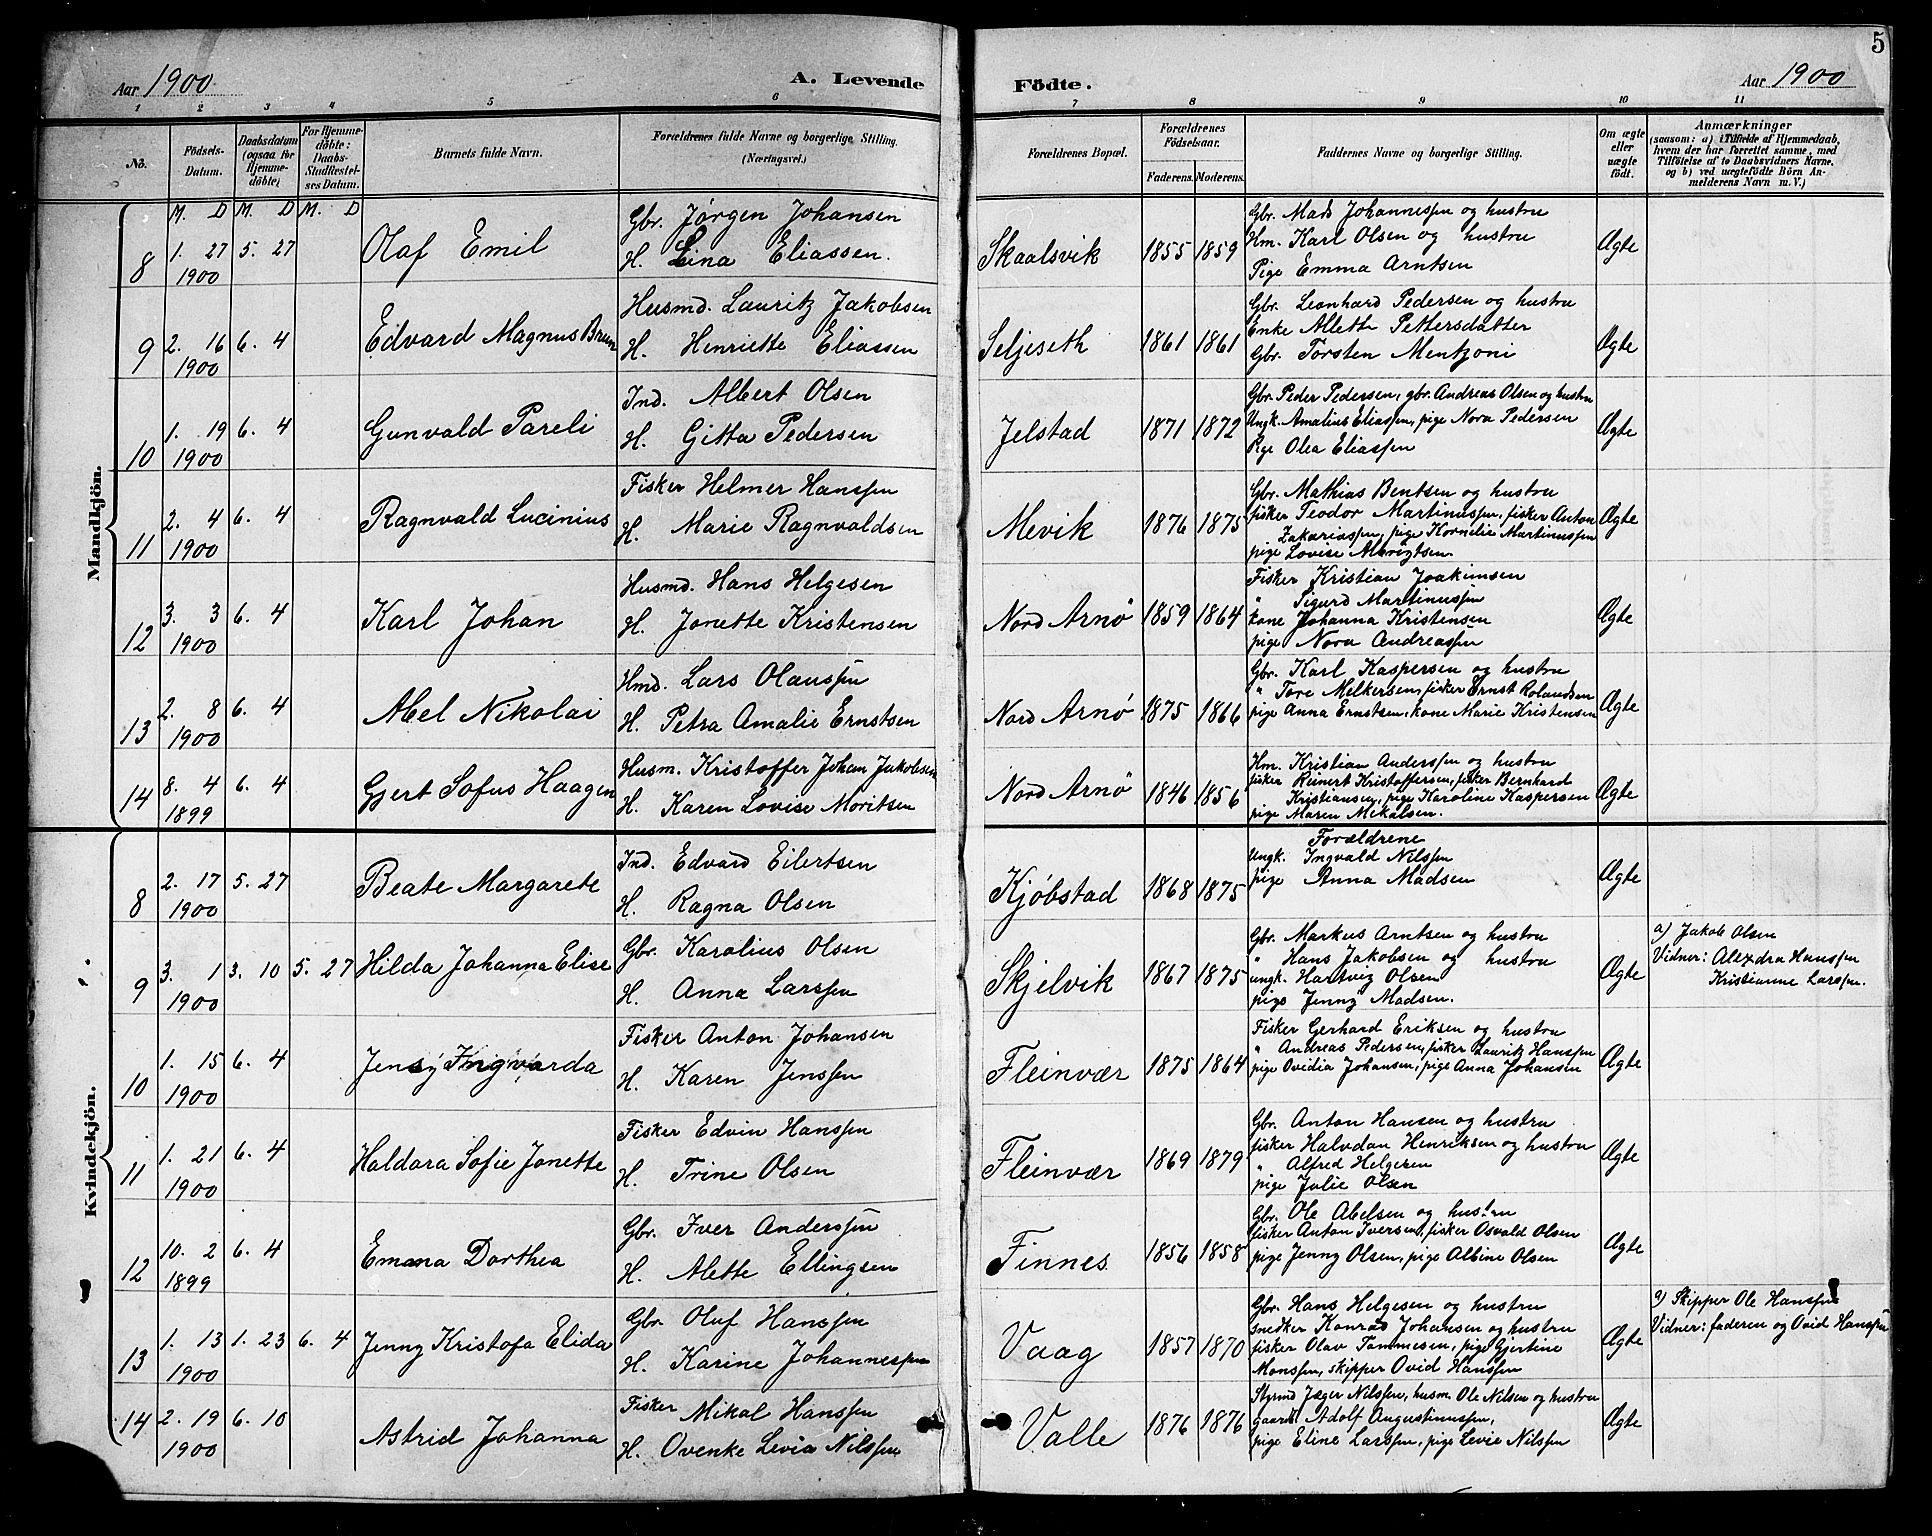 5
Aar 1900
A. Levende
Födte.
Aar 1900
1 2 3 4 5 6 7 8 9 10 11
No. Födsels-Datum. Daabsdatum (ogsaa for Hjemme-döbte) For Hjemme-döbte: Daabs-Stadfestel-ses Datum. Barnets fulde Navn. Forældrenes fulde Navne og borgerlige Stilling. (Næringsvei.) Forældrenes Bopæl. Forældrenes Födselsaar. Faderens. Moderens. Faddernes Navne og borgerlige Stilling. Om ægte eller uægte födt.
Anmærkninger
(saasom: a) i Tilfælde af Hjemmedaab,
hvem der har forrettet samme, med
Tilföielse af to Daabsvidners Navne,
og b) ved uægtefödte Börn An-
melderens Navn m. V.)
M. D M. D M. D
Mandkjön.
8 1. 27 1900 5. 27 Olaf Emil
Gbr. Jørgen Johansen
H. Lina Eliassen.
Skaalsvik 1855 1859
Gbr. Mads Johannessen og hustru
Hm. Karl Olsen og hustru
Pige Emma Arntsen
Ægte
9 2. 16 1900 6. 4 Edvard Magnus Brun
Husmd. Lauritz Jakobsen
H. Henriette Eliassen
Seljeseth 1861 1861
Gbr. Leonhard Pedersen og hustru
Enke Alette Pettersdatter
Gbr. Torsten Mentzoni
Ægte
10 1. 19 1900 6. 4 Gunvald Pareli
Ind. Albert Olsen
H. Gitta Pedersen
Jelstad 1871 1872
Gbr. Peder Pedersen, gbr. Andreas Olsen og hustru
Ungk. Amalius Eliassen, pige Nora Pedersen
Pige Olea Eliassen
Ægte
11 2. 4 1900 6. 4 Ragnvald Lucinius
Fisker Helmer Hanssen
H. Marie Ragnvaldsen
Mevik 1876 1875
Gbr. Mathias Bentsen og hustru
fisker Teodor Martinussen, fisker Anton
Zakariassen, pige Kornelie Martinussen
pige Lovise
Ægte
12 3. 3 1900 6. 4 Karl Johan
Husmd. Hans Helgesen
H. Jonette Kristensen
Nord Arnø 1859 1864
Fisker Kristian Joakimsen
" Sigurd Martinussen
kone Johanna Kristensen
pige Nora Andreassen
Ægte
13 2. 8 1900 6. 4 Abel Nikolai
Hmd. Lars Olaussen
H. Petra Amalie Ernstsen
Nord Arnø 1875 1866
Gbr. Karl Kaspersen og hustru
" Tore Melkersen, fisker Ernst Rolandsen
pige Anna Ernstsen, kone Marie Kristensen
Ægte
14 8. 4 1899 6. 4 Gjert Sofus Haagen
Husm. Kristoffer Johan Jakobsen
H. Karen Lovise Moritsen
Nord Arnø 1846 1856
Hm. Kristian Anderssen og hustru
fisker Reinert Kristoffersen, fisker Bernhard
Kristiansen, pige Karoline Kaspersen
pige Maren Mikalsen.
Ægte
Kvindekjön.
8 2. 17 1900 5. 27 Beate Margarete
Ind. Edvard Eilertsen
H. Ragna Olsen
Kjøbstad 1868 1875
Forældrene
Ungk. Ingvald Nilssen
pige Anna Madsen
Ægte
9 3. 1 1900 3. 10 5. 27 Hilda Johanna Elise
Gbr. Karolius Olsen
H. Anna Larssen
Skjelvik 1867 1875
Gbr. Markus Arntsen og hustru
" Hans Jakobsen og hustru
ungk. Hartvig Olsen
pige Jenny Madsen.
Ægte
a) Jakob Olsen
Vidner: Alexdra Hanssen
Kristianne Larssen.
10 1. 15 1900 6. 4 Jensy Ingvarda
Fisker Anton Johansen
H. Karen Jenssen
Fleinvær 1875 1864
Fisker Gerhard Eriksen og hustru
" Andreas Pedersen, fisker Lauritz Hanssen
pige Ovidia Johansen, pige Anna Johansen
Ægte
11 1. 21 1900 6. 4 Haldora Sofie Jonette
Fisker Edvin Hanssen
H. Trine Olsen
Fleinvær 1869 1879
Gbr. Anton Hansen og hustru
fisker Halvdan Henriksen og hustru
" Alfred Helgesen
pige Julie Olsen
Ægte
12 10. 2 1899 6. 4 Emma Dorthea
Gbr. Iver Anderssen
H. Alette Ellingsen
Finnes 1856 1858
Gbr. Ole Abelsen og hustru
fisker Anton Iversen, fisker Osvald Olsen
pige Jenny Olsen, pige Albine Olsen
Ægte
13 1. 13 1900 1. 23 6. 4 Jenny Kristofa Elida
Gbr. Oluf Hanssen
H. Karine Johannessen
Vaag 1857 1870
Gbr. Hans Helgesen og hustru
snedker Konrad Johansen og hustru
fisker Olav Tommesen, pige Gjertine
Monssen, skipper Ovid Hanssen
Ægte
a) Skipper Ole Hanssen
Vidner: faderen og Ovid Hanssen
14 2. 19 1900 6. 10 Astrid Johanna
Fisker Mikal Hanssen
H. Ovenke Levia Nilssen
Valle 1876 1876
Styrmd Jæger Nilssen, husm. Ole Nilsen og hustru
gaard. Adolf Augustinussen,
pige Eline Larssen, pige Levie Nilssen
Ægte